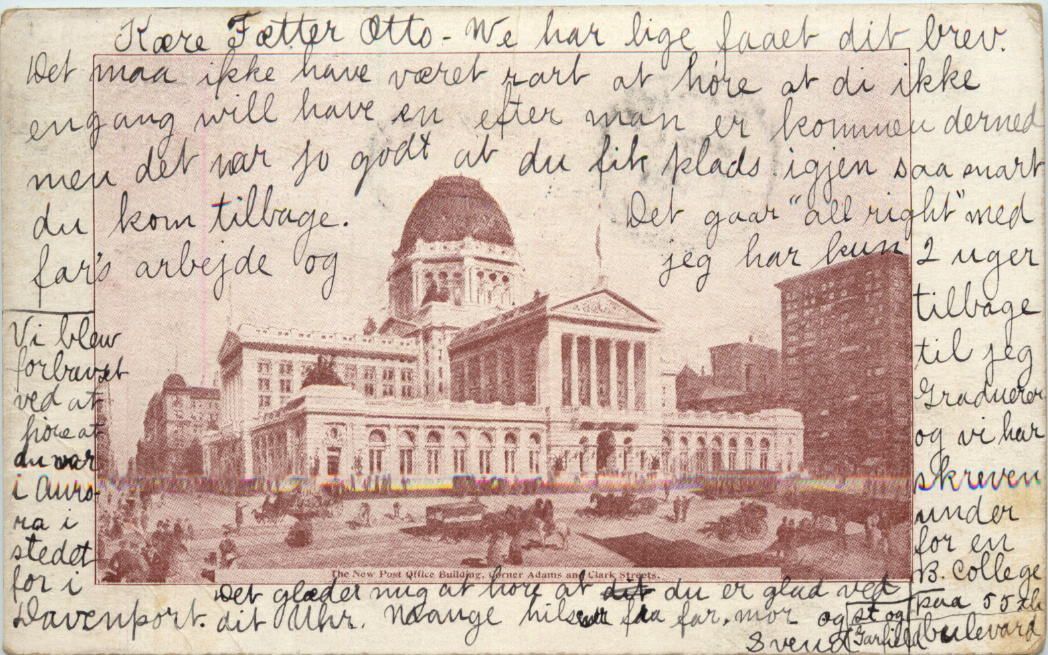 Kære Fætter Otto - We har lige faaet dit brev.
Det maa ikke have været rart at höre at di ikke
engang will have en efter man er kommen derned
men det var jo godt at du fik plads igjen saa snart
du kom tilbage. Det gaar "all right" med
far's arbejde og jeg har kun 2 uger
tilbage
til jeg
Graduerer
og vi har
skreven
under
for en
B. College
paa 55th
st og
Garfield bulevard
Vi blew
forbavset
ved at
höre at
du var
i Auro-
ra i
stedet
for i
Davenport.
The New Post Office Building, Corner Adams and Clark Streets.
Det glæder mig at höre at dit du er glad ved
dit Uhr. Mange hilsener fra far, mor og
Svend